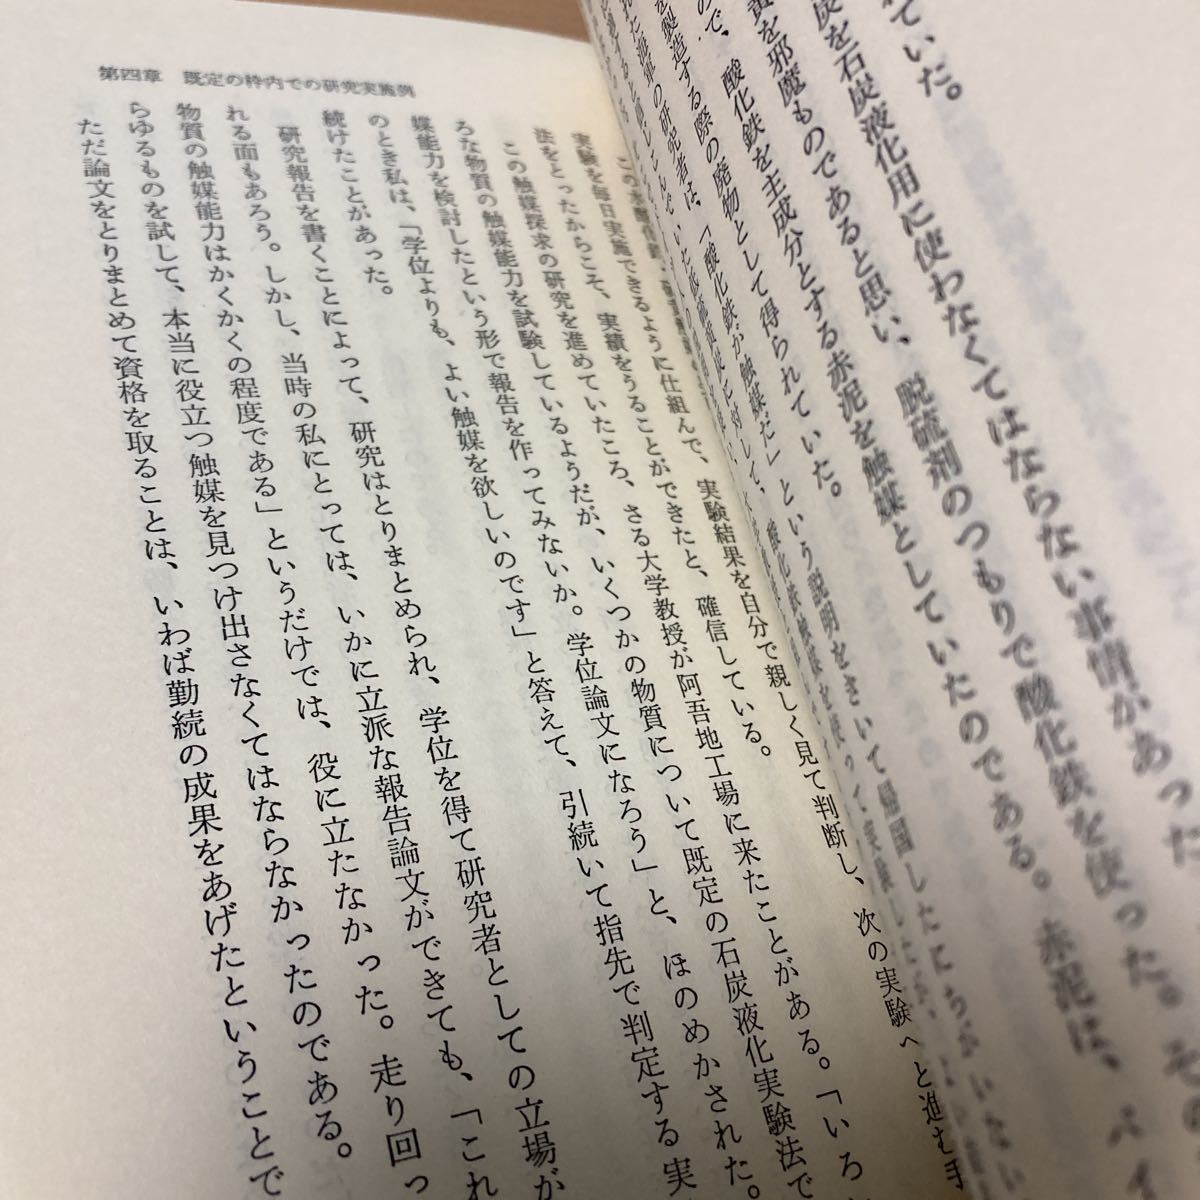 れていた。
炭を石炭液化用に使わなくてはならない事情があった。その
黄を邪魔ものであると思い、脱硫剤のつもりで酸化鉄を使った。
ので、酸化鉄を主成分とする赤泥を触媒としていたのである。赤泥は、バイ
を製造する際の廃物として得られていた。
れた海軍の研究者は、「酸化鉄が触媒だ」という説明をきいて帰国したにちがいない
第四章 既定の枠内での研究実施例
実験を毎日実施できるように仕組んで、実験結果を自分で親しく見て判断し、次の実験へと進む手
法をとったからこそ、実績をうることができたと、確信している。
この触媒探求の研究を進めていたころ、さる大学教授が阿吾地工場に来たことがある。「いろい
ろな物質の触媒能力を試験しているようだが、いくつかの物質について既定の石炭液化実験法で
媒能力を検討したという形で報告を作ってみないか。学位論文になろう」と、ほのめかされた。
のとき私は、「学位よりも、よい触媒を欲しいのです」と答えて、引続いて指先で判定する実
続けたことがあった。
研究報告を書くことによって、研究はとりまとめられ、学位を得て研究者としての立場が
れる面もあろう。しかし、当時の私にとっては、いかに立派な報告論文ができても、「これ
物質の触媒能力はかくかくの程度である」というだけでは、役に立たなかった。走り回っ
らゆるものを試して、本当に役立つ触媒を見つけ出さなくてはならなかったのである。
ただ論文をとりまとめて資格を取ることは、いわば勤続の成果をあげたということで